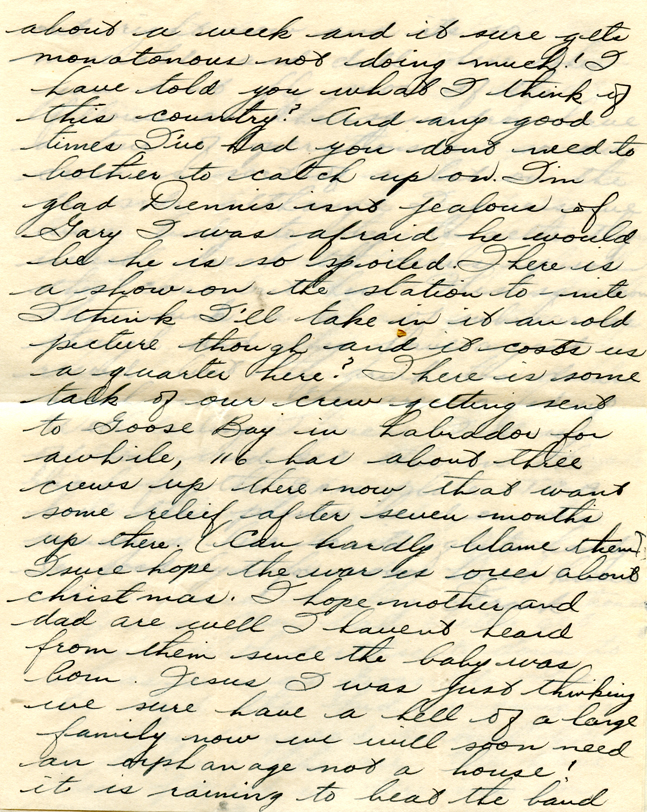 about a week and it sure gets
monotonous not doing much! I
have told you what I think of
this country? And any good
times I've had you dont need to
bother to catch up on. I'm
glad Dennis isnt jealous of
Gary I was afraid he would
be he is so spoiled. There is
a show on the station to nite
I think I'll take in it an old
picture though and it costs us
a quarter here? There is some
talk of our crew getting sent
to Goose Bay in Labrador for
awhile, 116 has about three
crews up there now that want
some relief after seven months
up there. (Can hardly blame them)
I sure hope the war is over about
christmas. I hope mother and
dad are well I havent heard
from them since the baby was
born. Jesus I was just thinking
we sure have a hell of a large
family now we will soon need
an orphanage not a house!
it is raining to beat the band